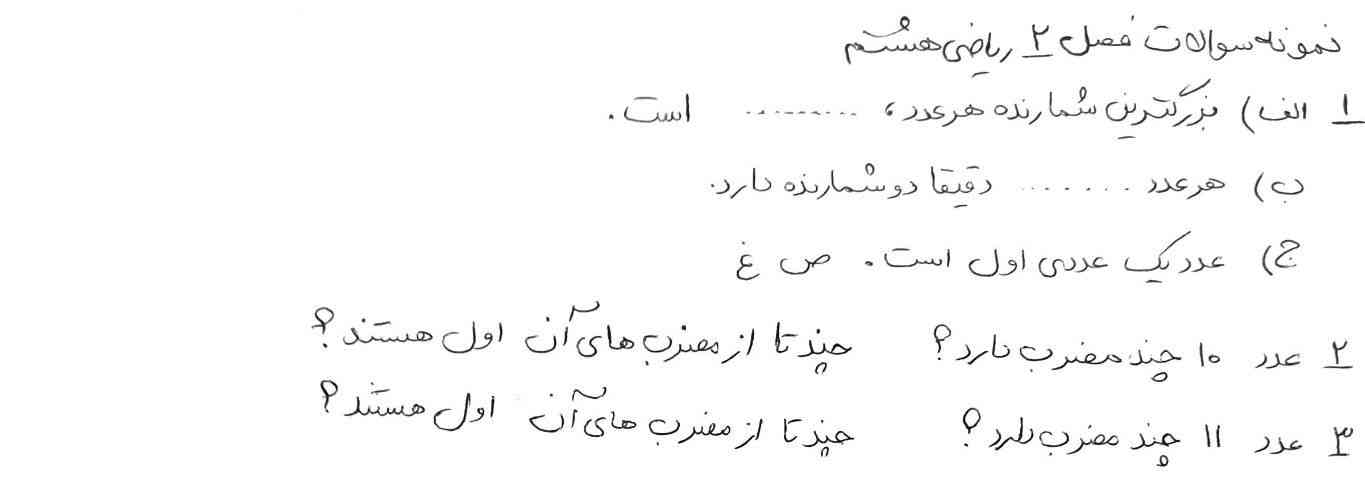 نمونه سوالات فصل ۲ ریاضی هشتم
۱ الف) بزرگترین شمارنده هر عدد، ......... است.
ب) هر عدد ....... دقیقا دو شمارنده دارد.
ج) عدد یک عددی اول است. ص غ
۲ عدد ۱۰ چند مضرب دارد؟ چند تا از مضرب های آن اول هستند؟
۳ عدد ۱۱ چند مضرب دارد؟ چند تا از مضرب های آن اول هستند؟